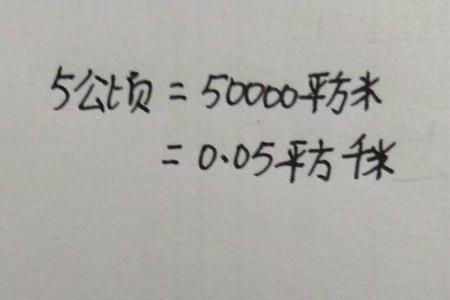 5公顷=50000平方米
=0.05平方千米